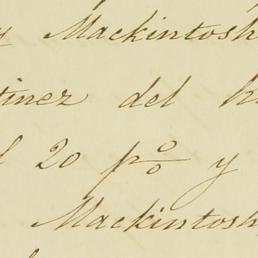 y Mackintosh
tinez del
20 p% y
Mackintosh